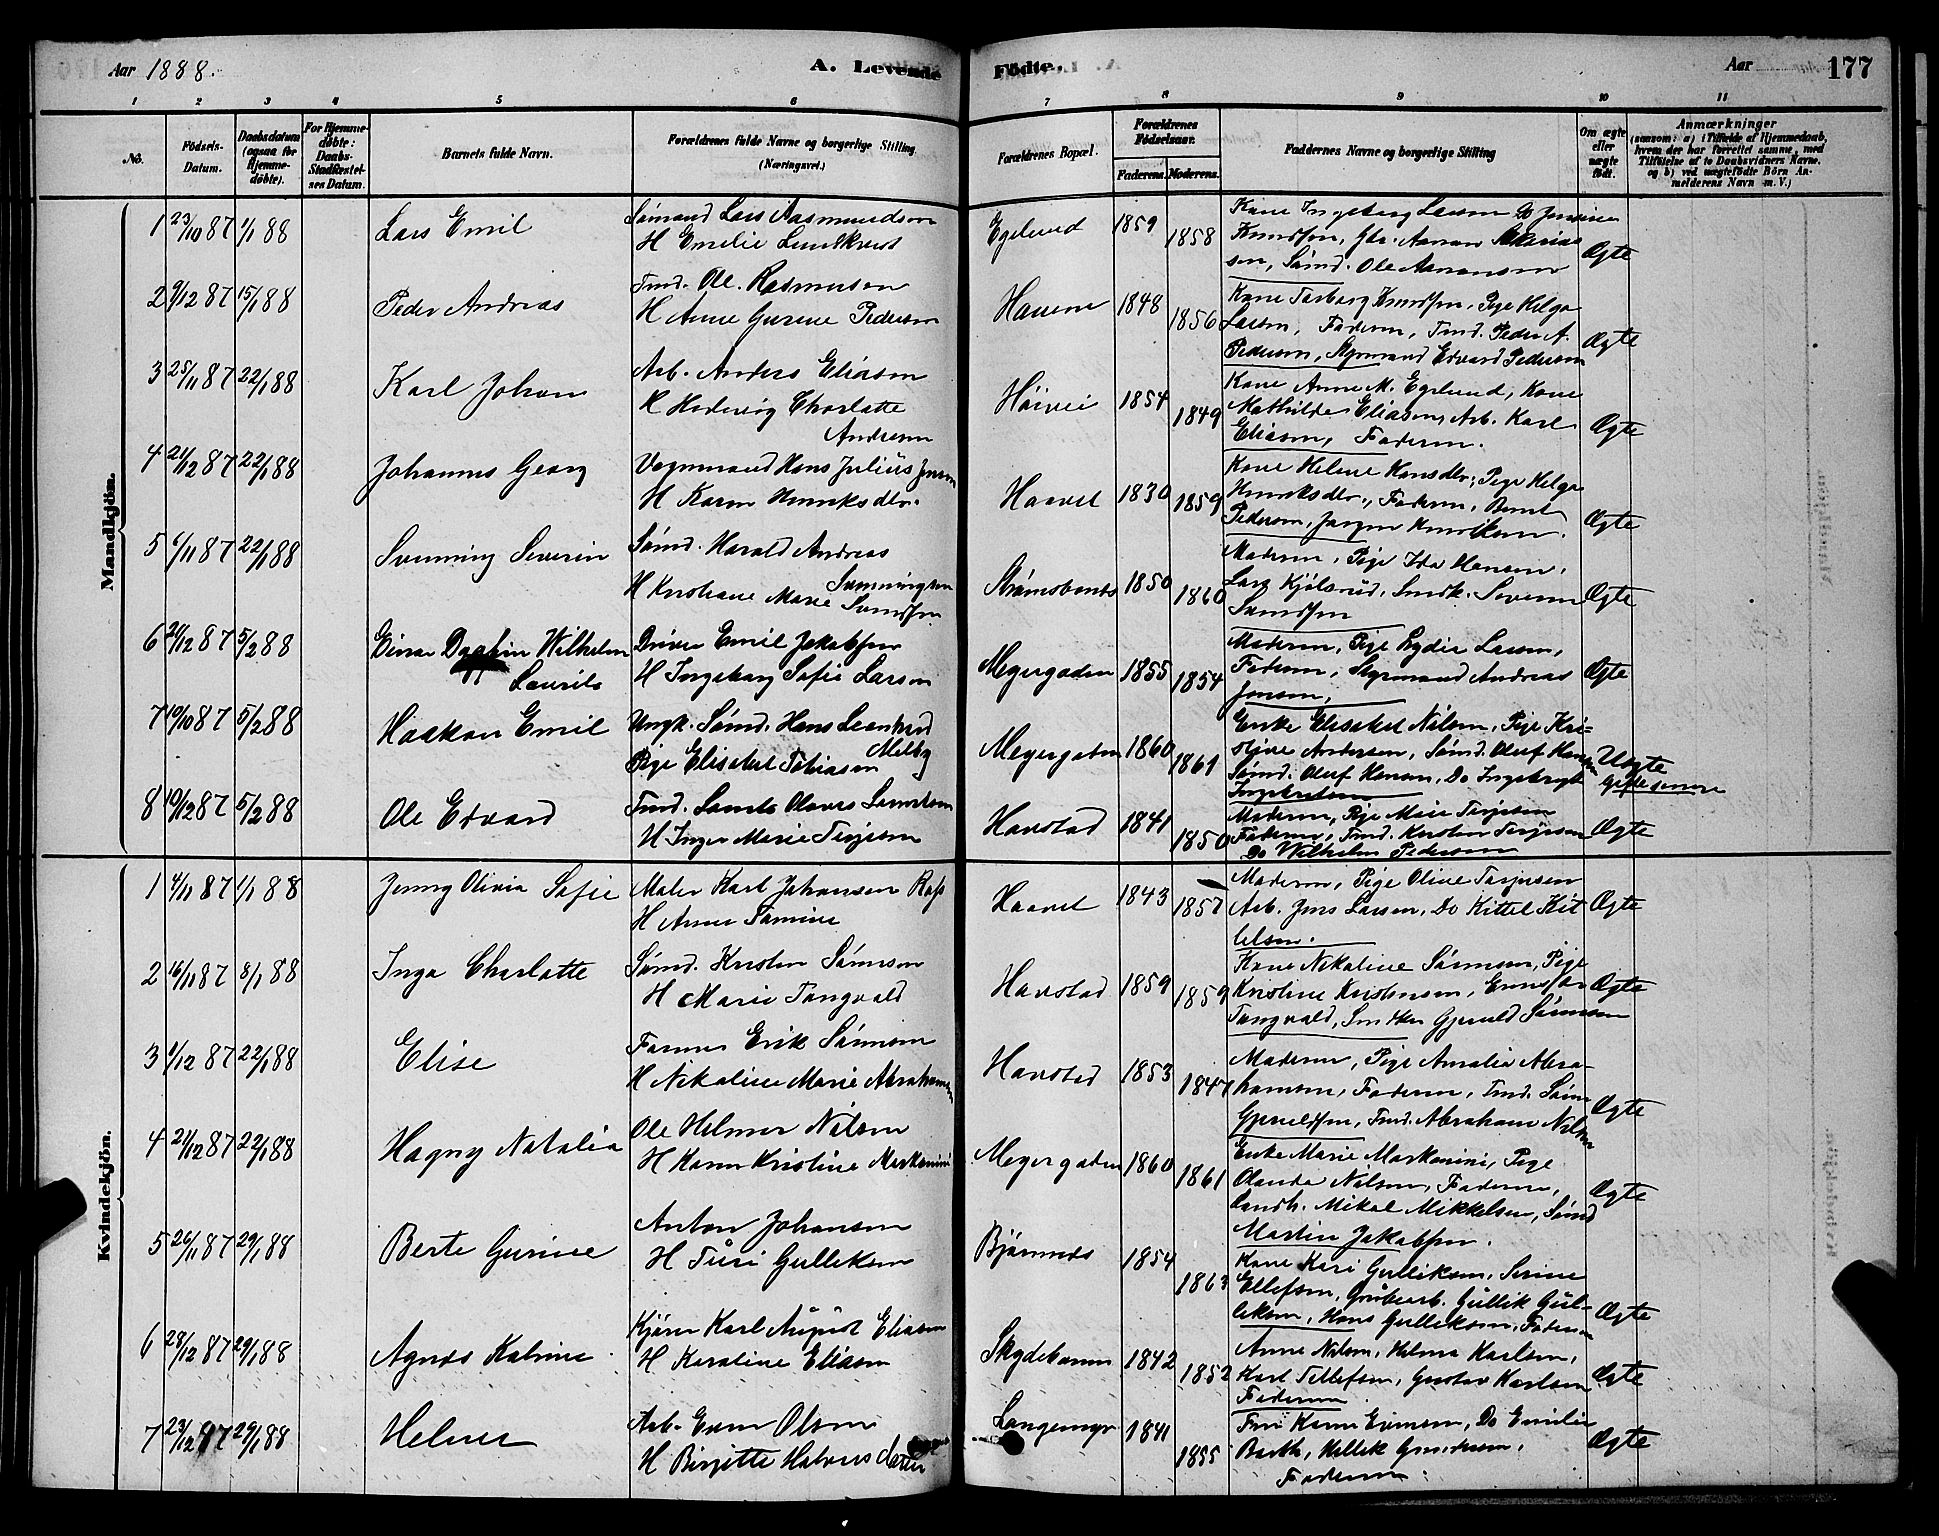 Aar 1888.
A. Levende Födte.
Aar
177
1 2 3 4 5 6 7 8 9 10 11
No.
Födsels-Datum.
Daabsdatum (ogsaa for Hjemme-döbte).
For Hjemme-döbte: Daabs-Stadfæstel-ses Datum.
Barnets fulde Navn.
Forældrenes fulde Navne og borgerlige Stilling (Næringsvei.)
Forældrenes Bopæl.
Forældrenes Födselsaar.
Faderens. Moderens.
Faddernes Navne og borgerlige Stilling
Om ægte eller uægte födt.
Anmærkninger
(saasom: a) i Tilfælde af Hjemmedaab, hvem der har forrettet samme, med Tilföielse af to Daabsvidners Navne, og b) ved uægtefödte Börn An-melderens Navn m. V.)
Mandkjön.
1 23/10 87 1/1 88 Lars Emil
Sømand Lars Aasmundsen
H Emilie Lundkvist
Egelund 1859 1858
Kone Ingeborg Larsen
Knudsen,
Sømd. Ole Aanonsen
Ægte
2 9/12 87 15/1 88 Peder Andreas
Tmd. Ole Rasmussen
H Anne Gurine Pedersen
Hauene 1848 1856
Kone Torborg Knudsen, Pige Helga
Larsen, Faderen, Tmd. Peder A.
Pedersen, Styrmand Edvard Pedersen
Ægte
3 25/11 87 22/1 88 Karl Johan
Arb. Anders Eliasen
H Hedevig Charlotte
Andersen
Höivei 1854 1849
Kone Anne M. Egelund, Kone
Mathilde Eliasen, Arb. Karl
Eliasen, Faderen.
Ægte
4 21/12 87 22/1 88 Johannes Georg
Vognmand Hans Julius Jensen
H Karen Henriksdtr.
Haavet 1830 1859
Kone Helene Hansdtr, Pige Helga
Henriksdtr., Faderen, Bernt
Pedersen, Jørgen
Ægte
5 6/11 87 22/1 88 Svenning Severin
Sømd. Harald Andreas
Svenningsen
H Kristiane Marie
Strømsbunes 1850 1860
Moderen, Pige Ida Hansen,
Lars Kjölsrud, Smdk. Severin
Ægte
6 26/12 87 5/2 88 Einar Dagfin Wilhelm
Laurits
Driver Emil Jakobsen
H Ingeborg Sofie Larsen
Meyergaden 1855 1854
Moderen, Pige Lydia Larsen,
Faderen, Styrmand Andreas
Jensen,
Ægte
7 19/10 87 5/2 88 Haakon Emil
Ungk. Sømd. Hans Leonhard
Melby
Pige Elisabet Tobiasen
Meyergaden 1860 1861
Enke Elisabet Nilsen, Pige Kri-
stine Andersen, Sømd. Oluf Hansen
Sømd. Oluf Hansen, Do Ingebregt
Ingebretsen
Uægte
Gifte senere
8 19/12 87 5/2 88 Ole Edvard
Tmd. Laurits Olaves Lauritsen
H Inger Marie Terjesen
Havstad 1841 1850
Moderen, Pige Marie Terjesen
Faderen, Tmd. Kristen Terjesen
Do Wilhelm Pedersen
Ægte
Kvindekjön.
1 4/11 87 1/1 88 Jenny Olivia Sofie
Maler Karl Johansen
H Anne Tomine
Haavet 1843 1857
Moderen, Pige Oline Terjesen
Arb. Jens Larsen, Do Kittel Kit-
telsen.
Ægte
2 16/11 87 8/1 88 Inga Charlotte
Sømd. Kristen Sørensen
H Marie Tangvald
Havstad 1859 1859
Kone Nikoline Sørensen, Pige
Kristine Kristensen,
Tangvald, Gjeruld Sørensen
Ægte
3 1/12 87 22/1 88 Elise
Former Erik Sørensen
H Nikoline Marie Abrahamsen
Havstad 1853 1847
Moderen, Pige Amalie Abra-
hamsen, Faderen, Tmd. Søren
Gjeruldsen, Tmd. Abraham Nilsen
Ægte
4 21/12 87 22/1 88 Hagny Natalia
Ole Helmer Nilsen
H Karen Kristine Markanini
Meyergaden 1860 1861
Enke Marie Markanini, Pige
Olanda Nilsen, Faderen,
Landh. Mikal Mikkelsen, Sømd
Martin Jakobsen.
Ægte
5 26/11 87 29/1 88 Berte Gurine
Anton Johansen
H Turi Gulleksen
Bjønnnes 1854 1863
Kone Kari Gulliksen, Serine
Ellefsen, Grubearb. Gullik Gul-
leksen, Hans Gulleksen, Faderen
Ægte
6 28/12 87 29/1 88 Agnes Katrine
Kjører Karl August Eliasen
H Karoline Eliasen
Skydebanen 1842 1852
Anne Nilsen, Helma Karlsen,
Karl Tellefsen, Gustav Karlsen
Faderen
Ægte
7 23/12 87 29/1 88 Helene
Arb. Even Olsen
H Birgitte Halvorsdatter
Langemyr 1841 1855
Fru Karen Evensen, Do Emilie
Barth, Kellik Gundersen,
Faderen.
Ægte